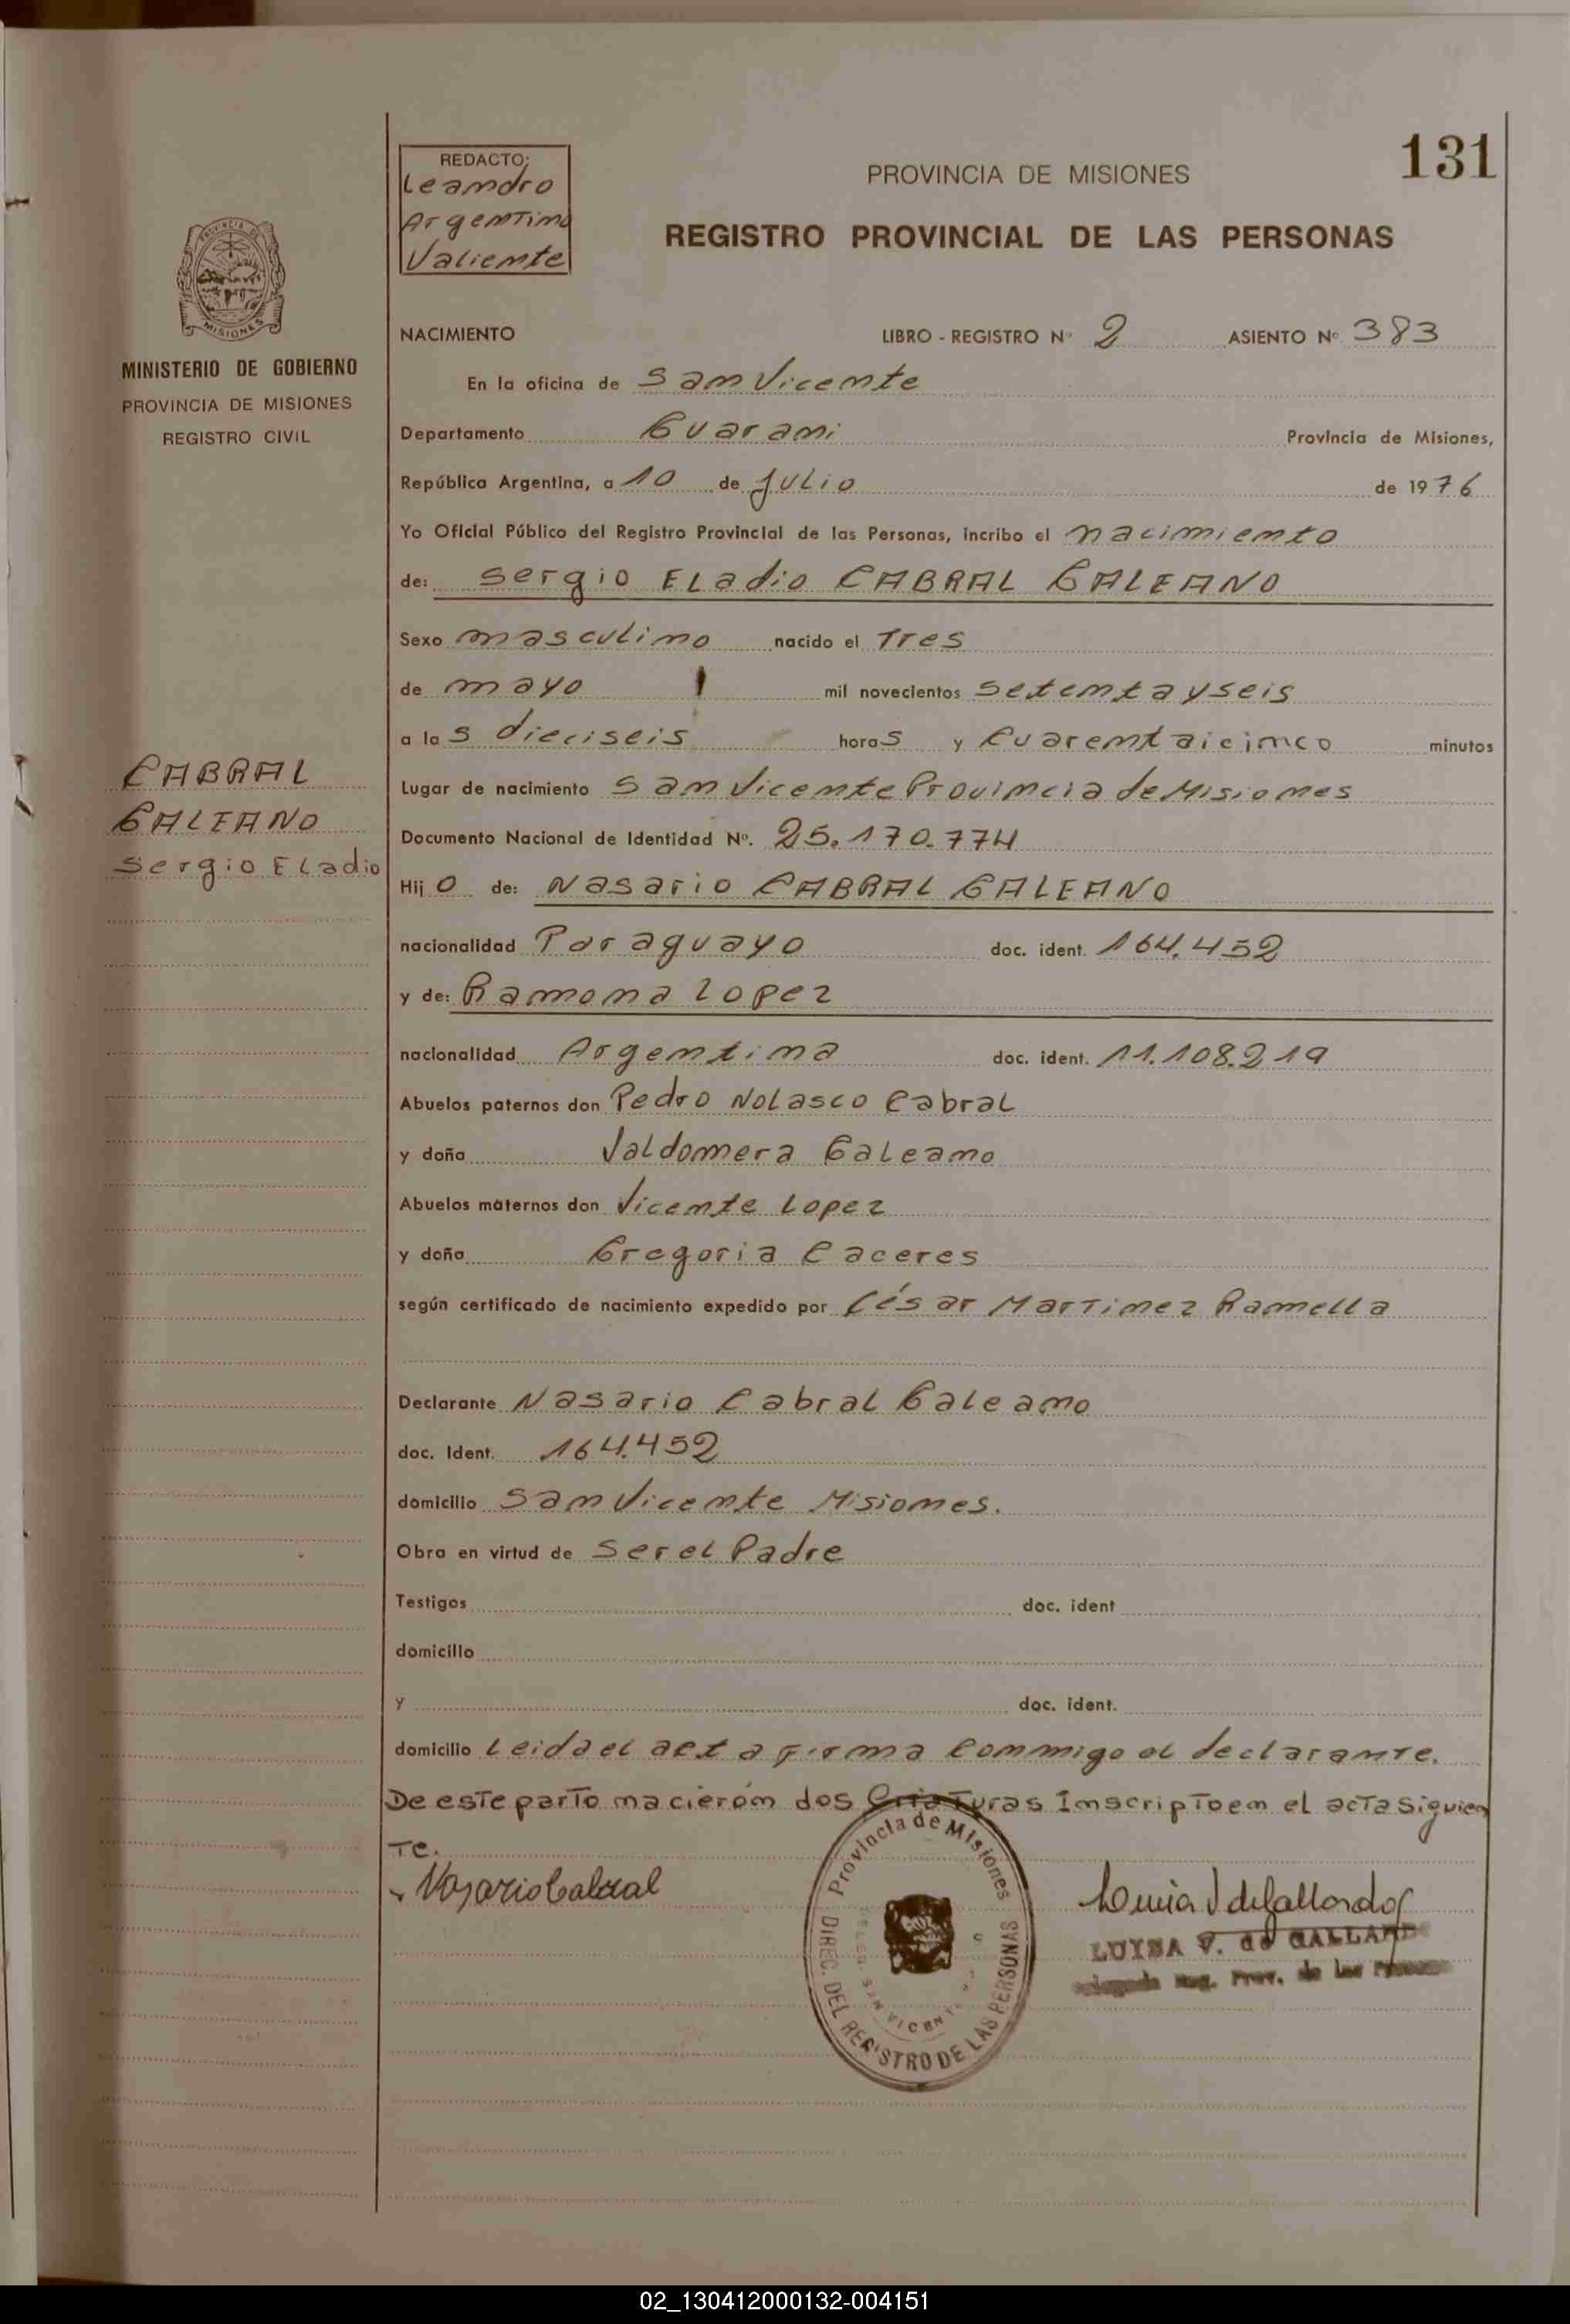 131
REDACTO:
Leandro
Argentino
Valiente
PROVINCIA DE MISIONES
REGISTRO PROVINCIAL DE LAS PERSONAS
PROVINCIA DE
MISIONES
MINISTERIO DE GOBIERNO
PROVINCIA DE MISIONES
REGISTRO CIVIL
NACIMIENTO LIBRO - REGISTRO Nº 2 ASIENTO Nº 383
En la oficina de San Vicente
Departamento Guarani Provincia de Misiones,
República Argentina, a 10 de Julio de 1976
Yo Oficial Público del Registro Provincial de las Personas, incribo el nacimiento
de: Sergio ELadio CABRAL GALEANO
Sexo masculino nacido el Tres
de mayo mil novecientos setentayseis
a las dieciseis horas y cuarentaicinco minutos
CABRAL
GALEANO
Sergio ELadio
Lugar de nacimiento San Vicente Provincia de Misiones
Documento Nacional de Identidad Nº. 25.170.774
Hijo de: Nasario CABRAL GALEANO
nacionalidad Paraguayo doc. ident. 164.452
y de: Ramona Lopez
nacionalidad Argentina doc. ident. 11.108.219
Abuelos paternos don Pedro Nolasco Cabral
y doña Valdomera Galeano
Abuelos maternos don Vicente Lopez
y doña Gregoria Caceres
según certificado de nacimiento expedido por César Martinez Ramella
Declarante Nasario Cabral Galeano
doc. Ident. 164.452
domicilio San Vicente Misiones.
Obra en virtud de Ser el Padre
Testigos doc. ident
domicilio
y doc. ident.
domicilio Leida el acta firma conmigo el declarante.
De este parto nacierón dos Criaturas Inscripto en el acta siguien
te.
Nasario Cabral
Provincia de Misiones
DIREC. DEL REGISTRO DE LAS PERSONAS
SAN VICENTE
LUISA V. de GALLARDO
Reg. Prov. de las Personas
02_130412000132-004151